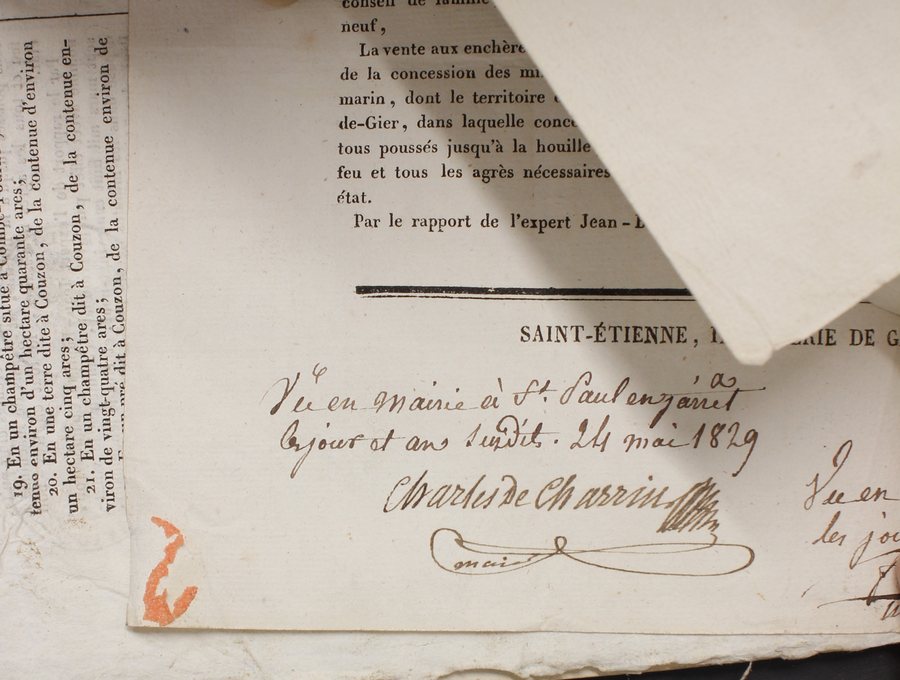 conseil de famille
neuf,
La vente aux enchère
de la concession des
marin, dont le territoire
de-Gier, dans laquelle conc
tous poussés jusqu'à la houille
feu et tous les agrès nécessaires
état.
Par le rapport de l'expert Jean-
SAINT-ÉTIENNE, ERIE DE G
Vue en mairie à St. Paul en jarret
les jour et an susdits. 24 mai 1829
Charles De Charrin
maire
Vu en
les jou
19. En un champêtre situé à Combe-
tenue environ d'un hectare quarante ares;
20. En une terre dite à Couzon, de la contenue d'environ
un hectare cinq ares;
21. En un champêtre dit à Couzon, de la contenue en-
viron de vingt-quatre ares;
pré dit à Couzon, de la contenue environ de